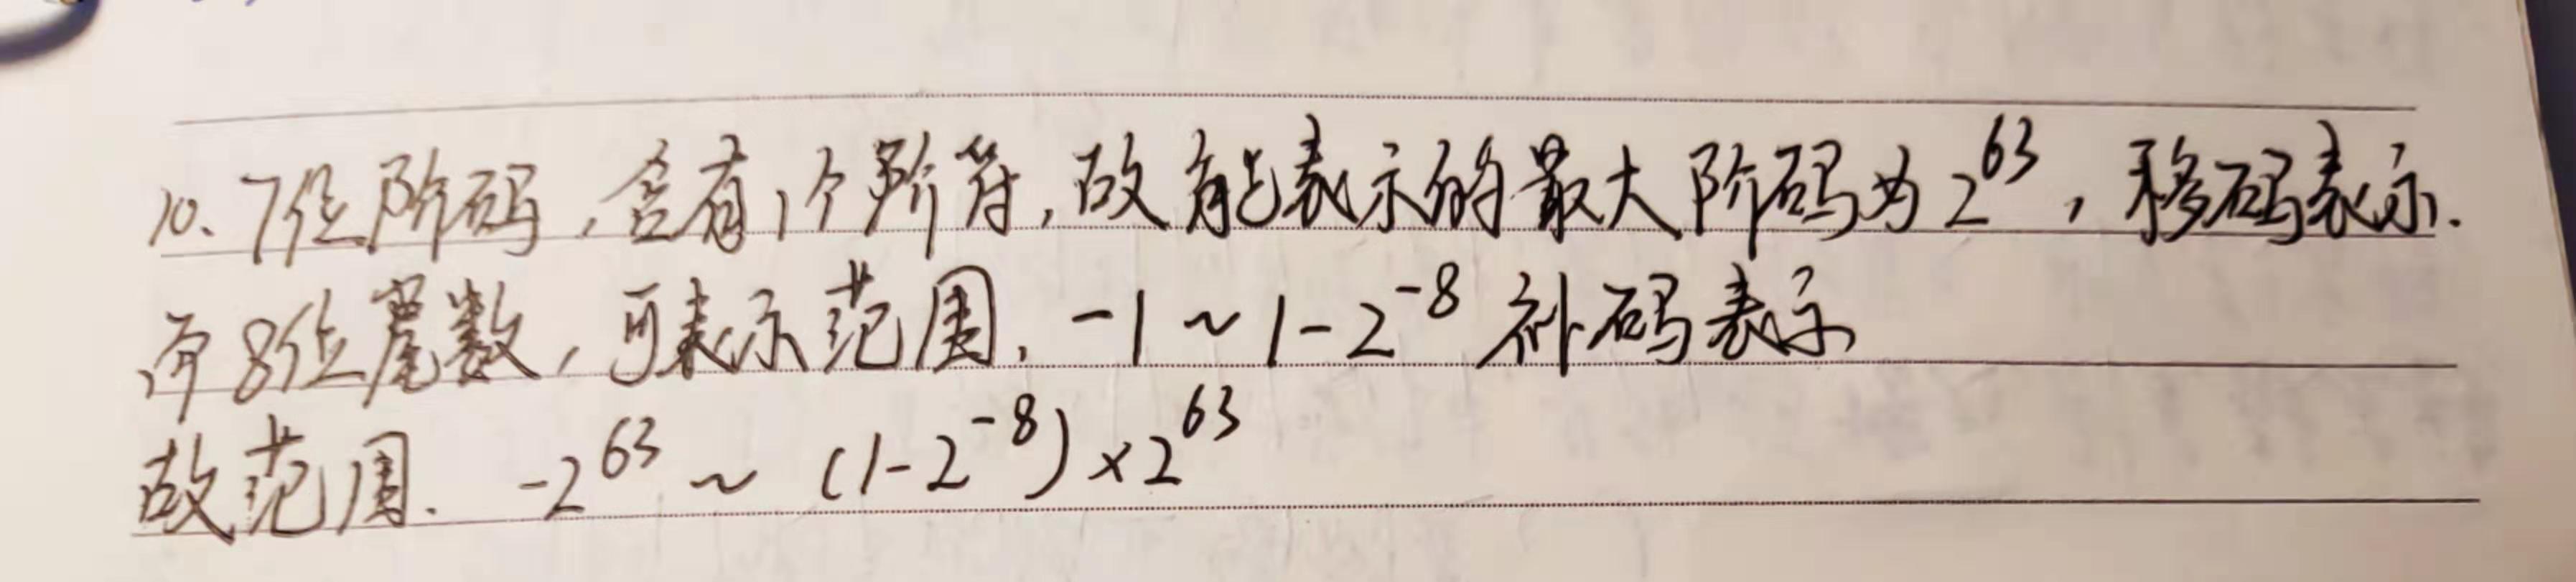 10、7位阶码，含有1个阶符，故能表示的最大阶码为2^63，移码表示.
而8位尾数，可表示范围，-1～1-2^-8 补码表示
故范围. -2^63 ～ (1-2^-8)×2^63